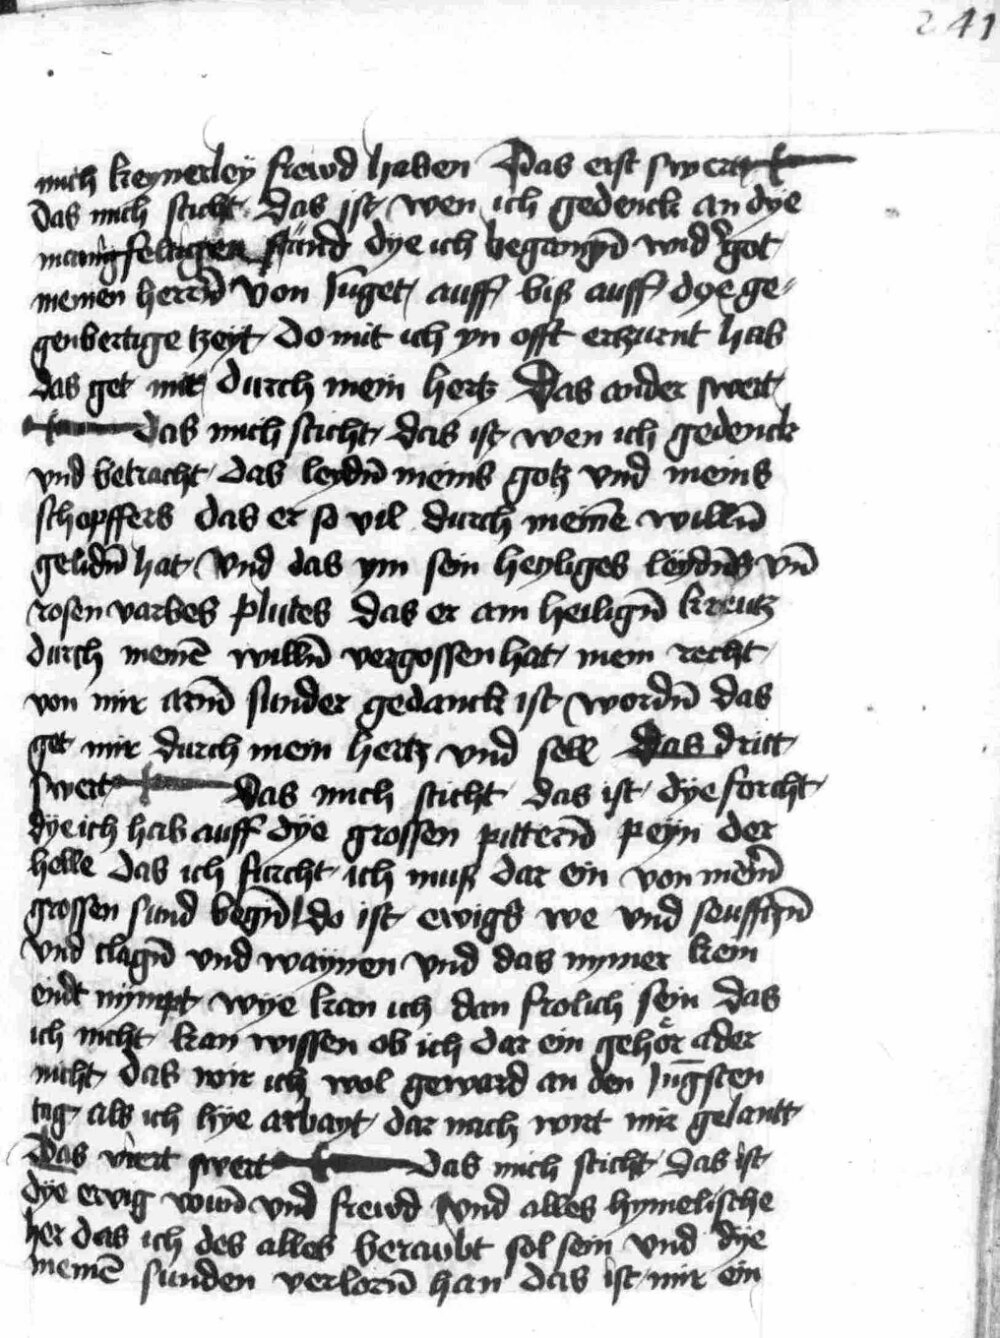 241
mich keynerley frewd haben Das erst swert
das mich sticht Das ist wen ich gedenck an dye
manigfeltigen sünd dye ich begangn̄ wid got
meinen herrn̄ von Juget auff biß auff dye ge-
genbertige tzeyt do mit ich yn offt ertzurnt hab
das get mir durch mein hertz Das ander swert
das mich sticht das ist wen ich gedenck
vnd betracht das leydn̄ meins gotz vnd meins
schopffers das er so vil durch meinē willn̄
gelidn̄ hat Vnd das ym sein heyliges leydn̄s vn̄
rosen varbes plutes das er am heilign̄ kreutz
durch meinē willn̄ vergossen hat mein recht
von mir armn̄ sunder gedanck ist wordn̄ das
get mir durch mein hertz vnd sell Das dritt
swert Das mich sticht das ist dye forcht
dye ich hab auff dye grossen pittern̄ peyn der
helle das ich furcht ich muß dar ein von mein̄
grossen sund begn̄ do ist ewigs we vnd seufftzn̄
vnd clagn̄ vnd waynen vnd das nymer kein
endt nympt wye kan ich dan frolich sein das
ich nicht kan wissen ob ich dar ein gehör ader
nicht das wir ich wol geward an den Jūgsten
tag als ich hye arbayt dar nach wirt mir gelantt
Das viert swert das mich sticht das ist
dye ewig wun̄ vnd frewd vnd alles hymelische
her das ich des alles beraubt sol sein vnd dye
meinē sunden verlorn̄ han das ist mir ein